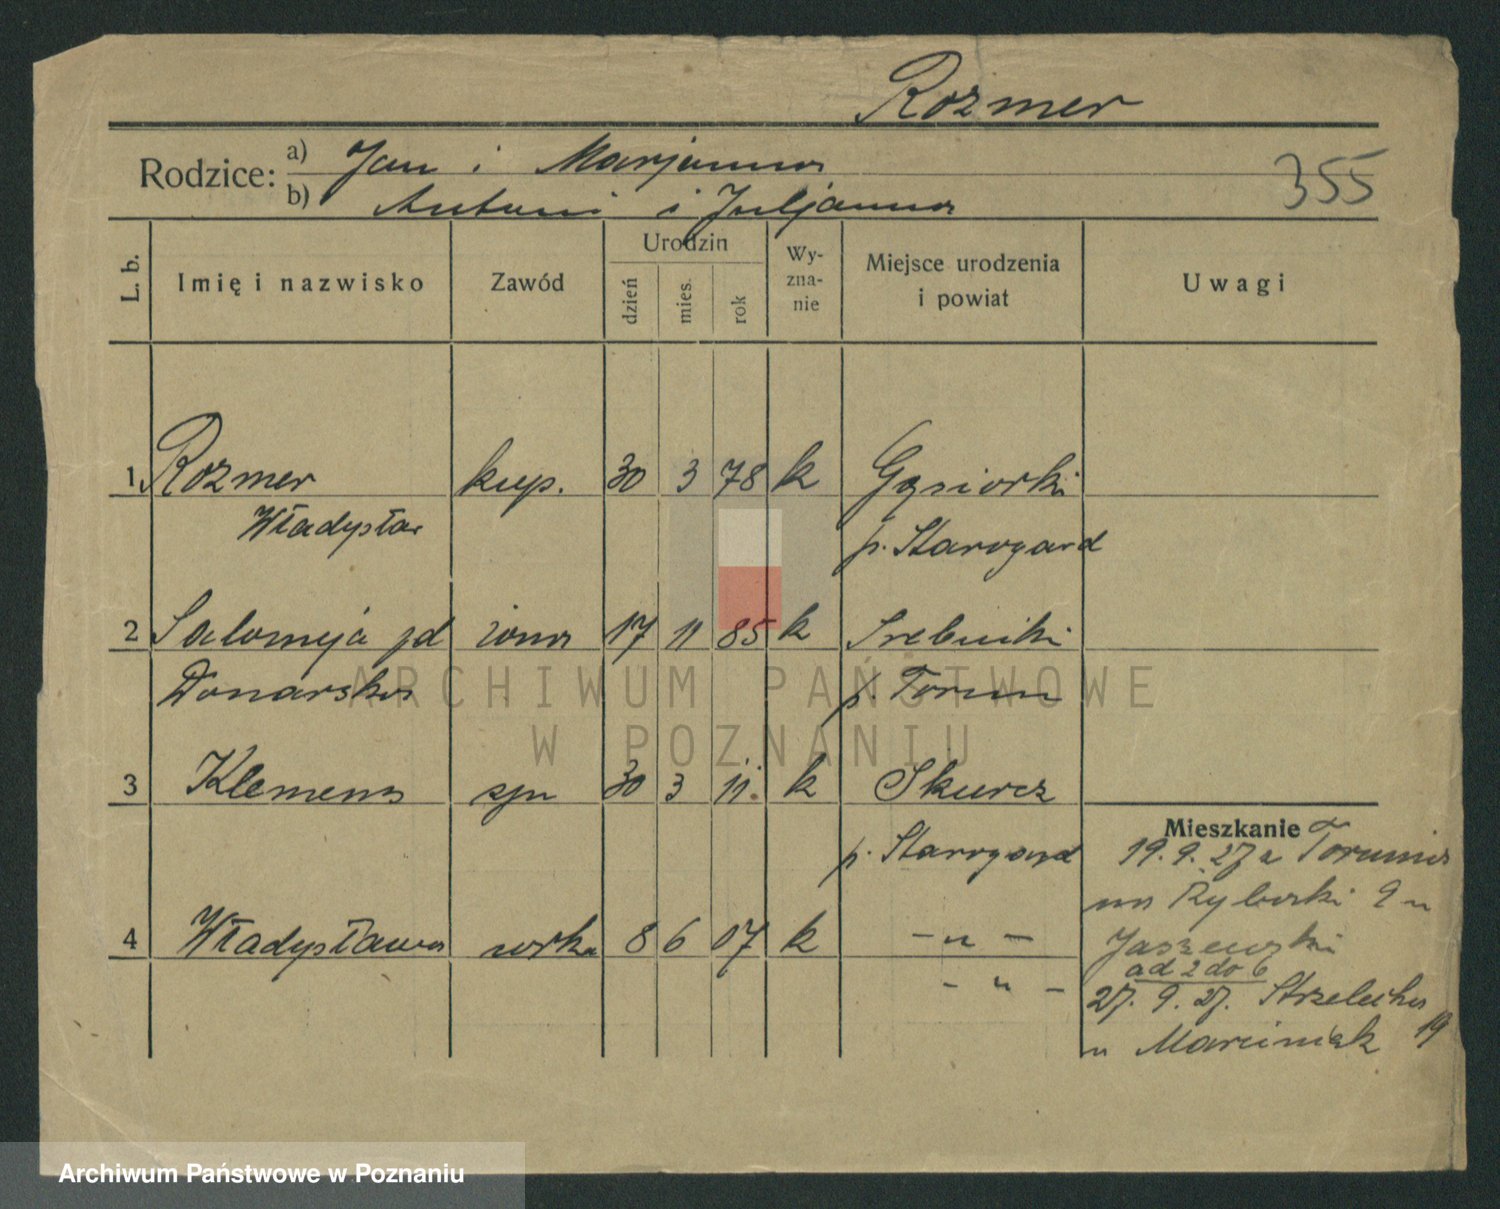 Rozmer
Rodzice: a) Jan i Marjanna
b) Antoni i Juljanna
355
L. b. Imię i nazwisko Zawód Urodzin dzień mies. rok Wyznanie Miejsce urodzenia i powiat Uwagi
1 Rozmer kup. 30 3 78 k Gąsiorki
Władysław p. Starogard
2 Salomeja zd żona 17 11 85 k Srebniki
Donarska p. Toruń
3 Klemens syn 30 3 11. k Skurcz
p. Starogard
4 Władysława córka 8 6 07 k – „ –
– „ –
Mieszkanie
19. 9. 27 z Torunia
na Rybarki 9 u
Jaszewski
ad 2 do 6
27. 9. 27. Strzelecka 19
u Marciniak
ARCHIWUM PAŃSTWOWE
W POZNANIU
Archiwum Państwowe w Poznaniu